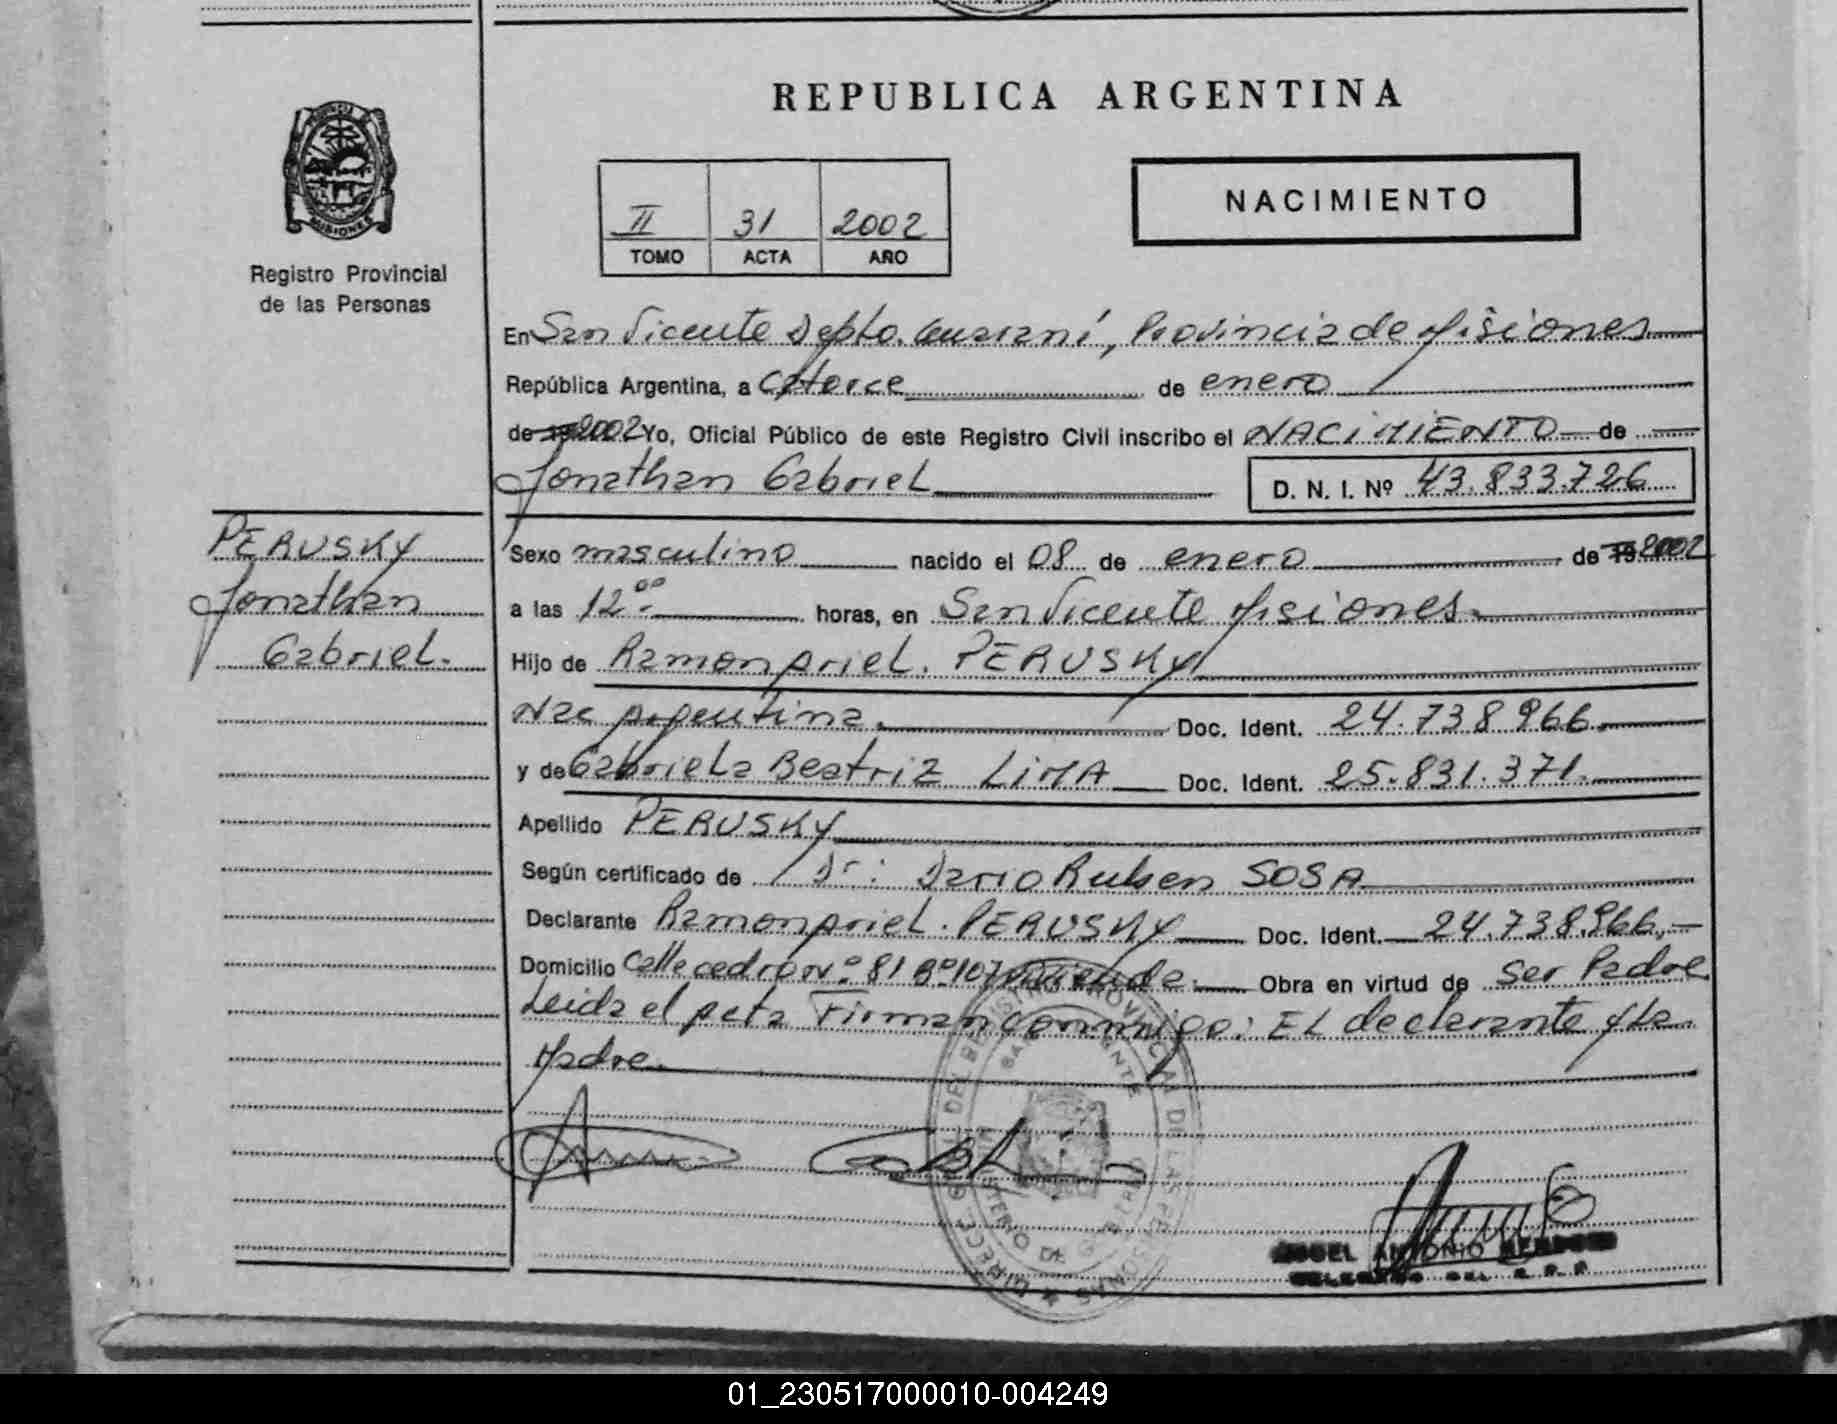 REPUBLICA ARGENTINA
II 31 2002
TOMO ACTA AÑO
NACIMIENTO
MISIONES
Registro Provincial
de las Personas
En San Vicente Depto. Guaraní, Provincia de Misiones
República Argentina, a Catorce de enero
de 19 2002 Yo, Oficial Público de este Registro Civil inscribo el NACIMIENTO de
Jonathan Gabriel D. N. I. Nº 43.833.726
PERUSKY
Jonathan
Gabriel.
Sexo masculino nacido el 08 de enero de 19 2002
a las 12.00 horas, en San Vicente Misiones.
Hijo de Ramon Ariel. PERUSKY
Nac Argentina. Doc. Ident. 24.738.966.
y de Gabriela Beatriz LIMA Doc. Ident. 25.831.371.
Apellido PERUSKY
Según certificado de Dr: Dario Ruben SOSA
Declarante Ramon Ariel. PERUSKY Doc. Ident. 24.738.966.-
Domicilio Calle cedro Nº 81 Bº 107 Vivienda. Obra en virtud de ser Padre
Leida el Acta Firman conmigo: EL declarante y La
Madre.
ANTONIO
01_230517000010-004249